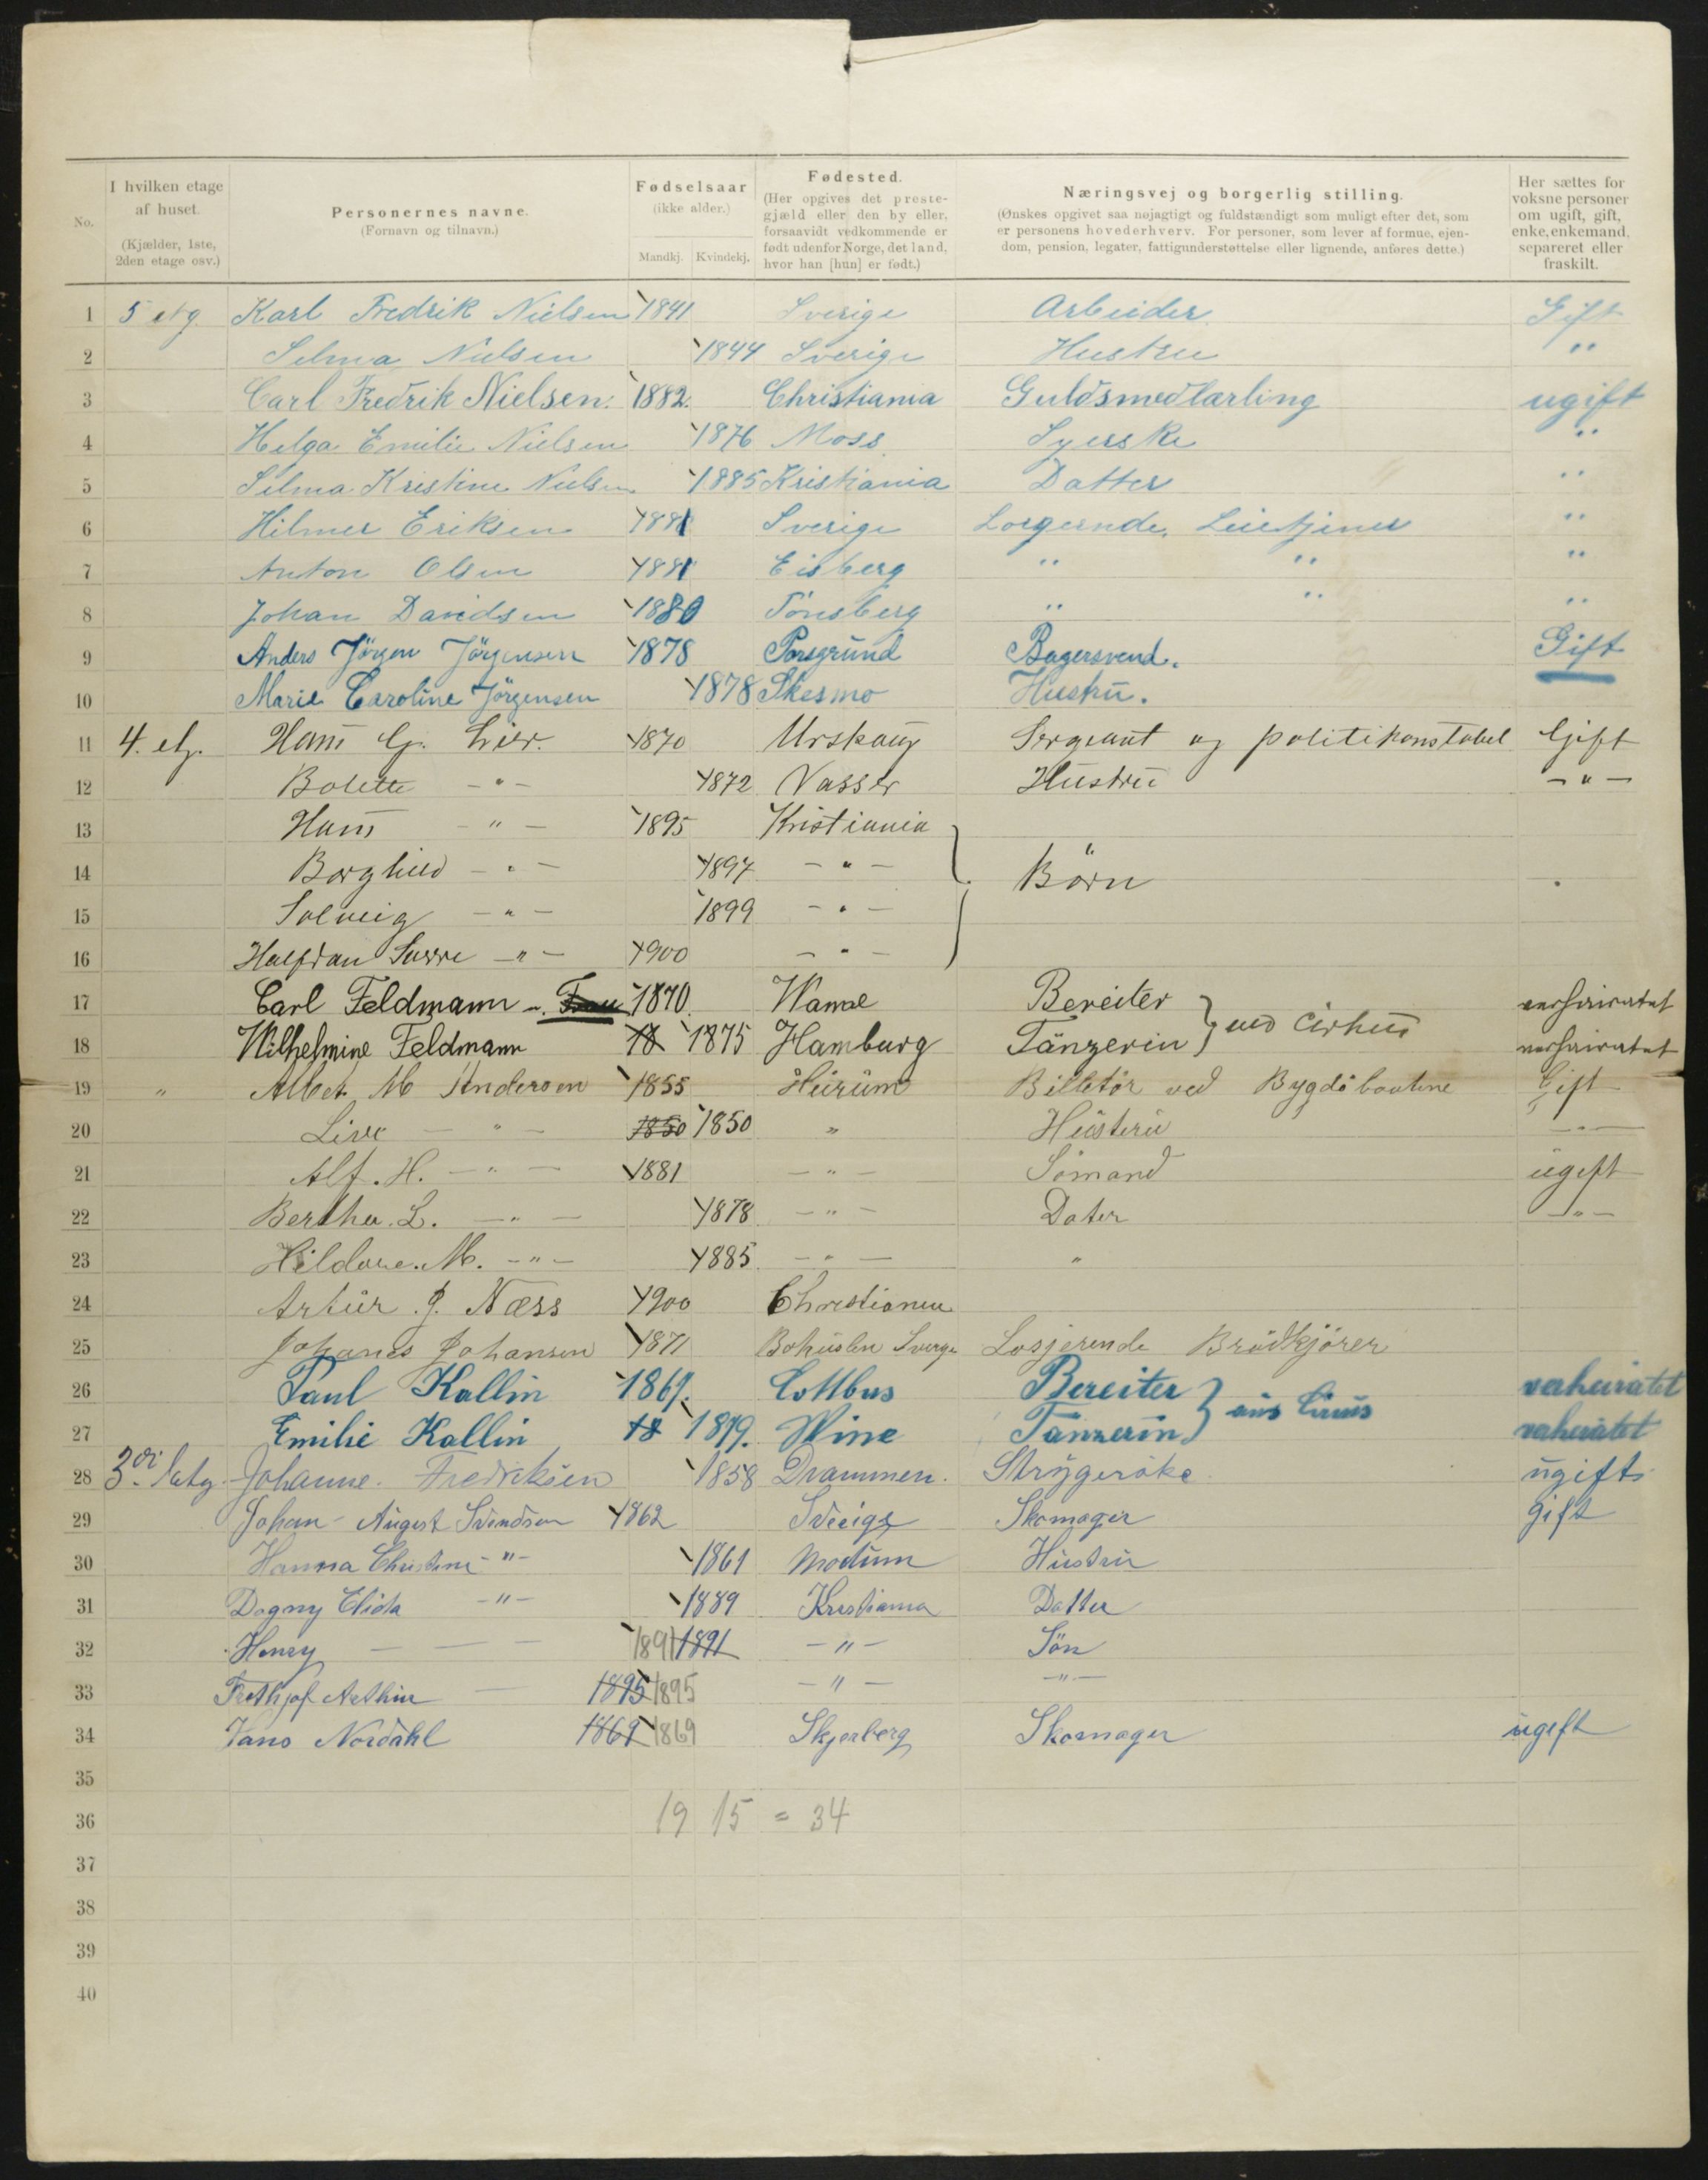 No.
I hvilken etage af huset. (Kjælder, 1ste, 2den etage osv.)
Personernes navne. (Fornavn og tilnavn.)
Fødselsaar (ikke alder.) Mandkj. Kvindekj.
Fødested. (Her opgives det prestegjæld eller den by eller, forsaavidt vedkommende er født udenfor Norge, det land, hvor han [hun] er født.)
Næringsvej og borgerlig stilling. (Ønskes opgivet saa nøjagtigt og fuldstændigt som muligt efter det, som er personens hovederhverv. For personer, som lever af formue, ejendom, pension, legater, fattigunderstøttelse eller lignende, anføres dette.)
Her sættes for voksne personer om ugift, gift, enke, enkemand, separeret eller fraskilt.
1 5 etg Karl Fredrik Nielsen 1841 Sverige Arbeider Gift
2 Selma Nielsen 1844 Sverige Hustru "
3 Carl Fredrik Nielsen. 1882. Christiania Guldsmedlærling ugift
4 Helga Emilie Nielsen 1876 Moss Syerske "
5 Selma Kristine Nielsen 1885 Kristiania Datter "
6 Hilmer Eriksen 1881 Sverige Logernde, Leietjener "
7 Anton Olsen 1881 Eisberg " " "
8 Johan Davidsen 1880 Tönsberg " " "
9 Anders Jörgen Jörgensen 1878 Porsgrund Bagersvend. Gift
10 Marie Caroline Jörgensen 1878 Skesmo Hustru.
11 4. etg. Hans G. Lier. 1870 Urskoug Sergeant og politikonstabel Gift
12 Bolette - " - 1872 Nasser Hustru - " -
13 Hans - " - 1895 Kristiania
14 Borghild - " - 1897 - " - Börn
15 Solveig - " - 1899 - " -
16 Halfdan Sverre - " - 1900 - " -
17 Carl Feldmann u. Frau 1870. Bereiter verheiratet
18 Wilhelmine Feldmann 18 1875 Hamburg Tänzerin } ved Cirkus verheiratet
19 " Albert M Anderson 1855 Heirum Billetör ved Bygdö baatene Gift
20 - " - 1850 1850 " Husteru - " -
21 Alf. H. - " - 1881 - " - Sömand ugift
22 Berthe. L. - " - 1878 - " - Dater - " -
23 M. - " - 1885 - " - "
24 Artur. J. Næss 1900 Christianea
25 Johanes Johansen 1871 Bohuslen Sverge Losjerende Brödkjörer
26 Paul Kallin 1867. Cottbus Bereiter verheiratet
27 Emilie Kallin 18 1879. Wine Tänzerin } aus Circus verheiratet
28 3die Etg. Johanne. Fredriksen 1858 Drammen. Strygerske ugift
29 Johan August Svendsen 1862 Sverige Skomager gift
30 Hanna Christine - " - 1861 Modum Hustru
31 Dagny Elida - " - 1889 Kristiania Datter
32 Henry - - - 1891 1891 - " - Sön
33 Frethjof Arthur - 1895 1895 - " - - " -
34 Hans Nordahl 1869 1869 Skjerberg Skomager ugift
35
36 19 15 = 34
37
38
39
40